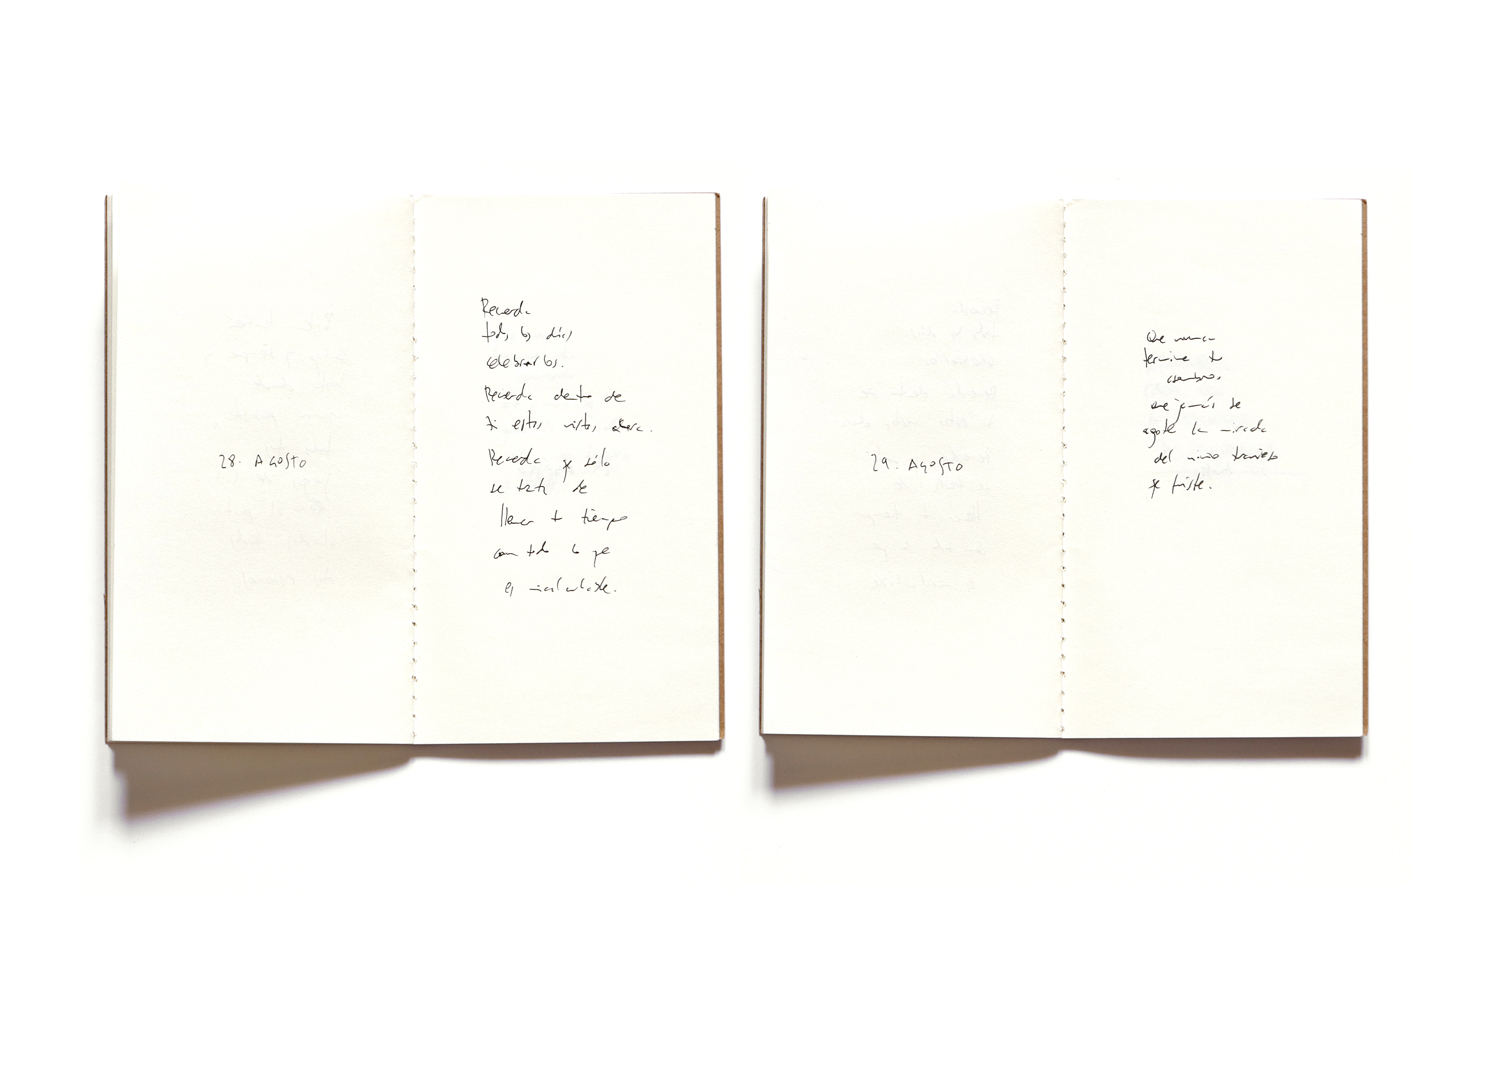 28. AGOSTO
Recuerda
todos los días
celebrarlos.
Recuerda dentro de
ti estas vistas, ahora.
Recuerda q sólo
se trata de
llenar tu tiempo
con todo lo que
es incalculable.
29. AGOSTO
Que nunca
termine tu
asombro,
que jamás se
agote la mirada
del niño travieso
q fuiste.